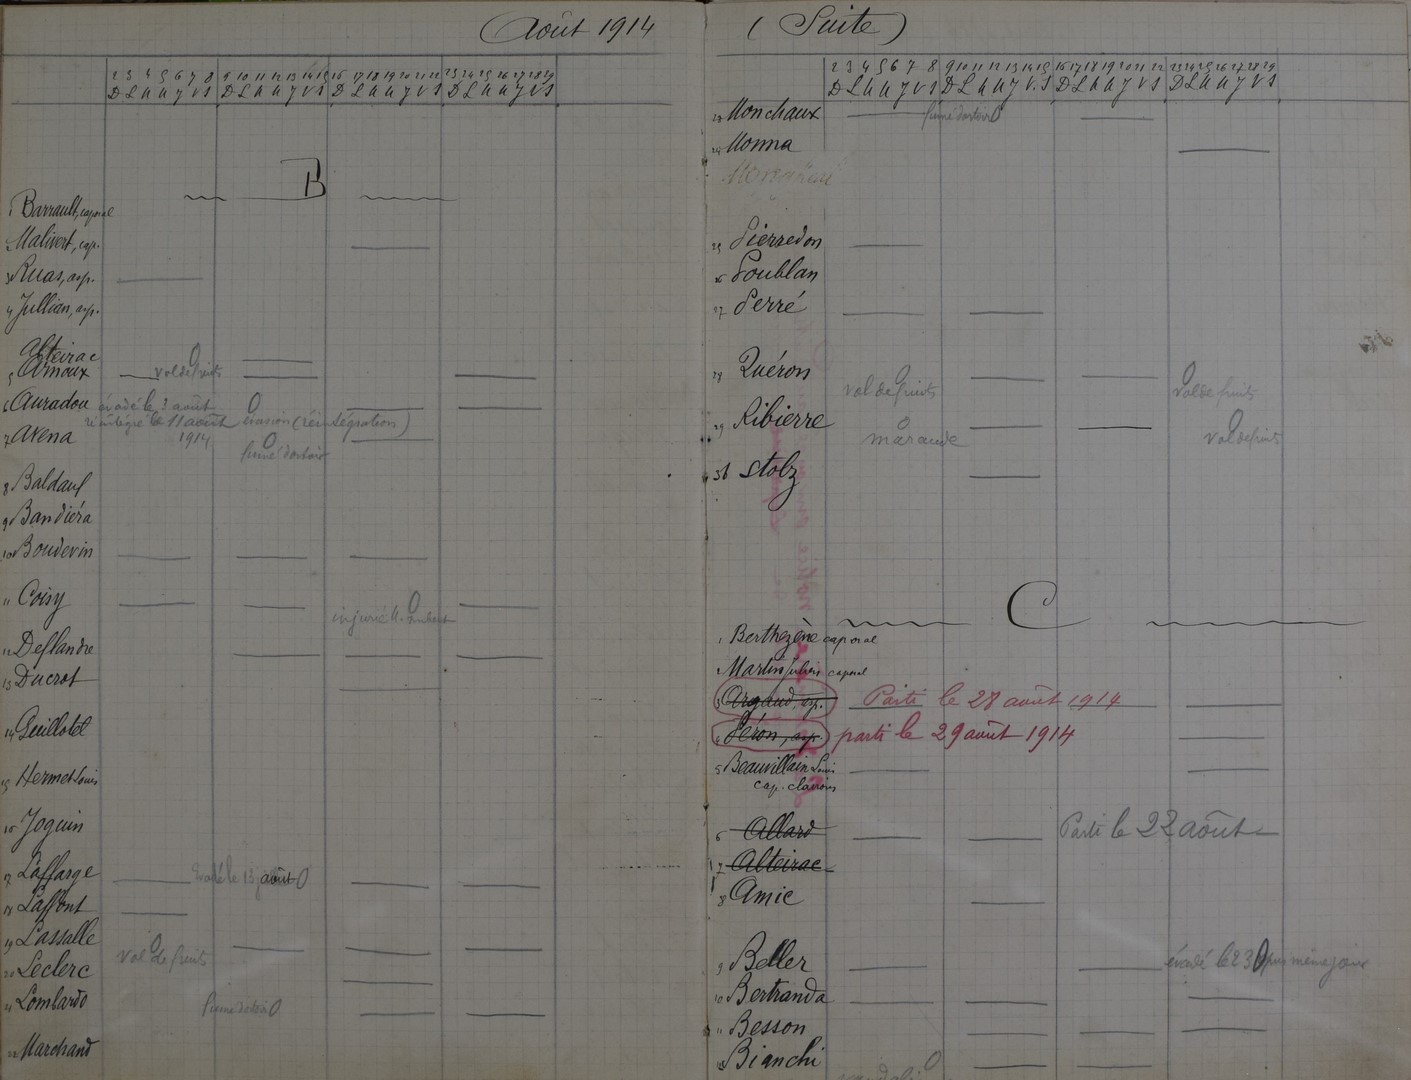 Août 1914
2 3 4 5 6 7 8 9 10 11 12 13 14 15 16 17 18 19 20 21 22 23 24 25 26 27 28 29
D L M M J V S D L M M J V S D L M M J V S D L M M J V S
B
1 Barrault, caporal
2 Malivert, cap.
3 Ruas, asp.
4 Jullian, asp.
Alteirac 0
5 Arnoux vol de fruits
6 Auradou évadé le 3 août 0
réintégré le 11 août évasion (réintégration)
7 Avena 1914 0
fumé dortoir
8 Baldauf
9 Bandiéra
10 Boudevin
11 Coisy 0
injurié M.
12 Deflandre
13 Ducrot
14 Guillotel
15 Hermet Louis
16 Joguin
17 Laffarge Evadé le 13 août 0
18 Laffont
19 Lassalle 0
vol de fruits
20 Leclerc
21 Lombardo fumé dortoir 0
22 Marchand
(Suite)
2 3 4 5 6 7 8 9 10 11 12 13 14 15 16 17 18 19 20 21 22 23 24 25 26 27 28 29
D L M M J V S D L M M J V S D L M M J V S D L M M J V S
23 Monchaux fumé dortoir 0
24 Monna
25 Pierredon
26 Poublan
27 Perré
28 Quéron 0 0
vol de fruits vol de fruits
29 Ribierre 0 0
maraude vol de fruits
30 Stolz
C
1 Berthezène caporal
2 Martin Julien caporal
3 Argaud, asp. Parti le 28 août 1914
4 Péron, asp. parti le 29 août 1914
5 Beauvillain Louis
cap. clairons
6 Allard Parti le 22 août
7 Alteirac
8 Amic
9 Beller évadé le 23 0 même jour
10 Bertranda
11 Besson
12 Bianchi 0